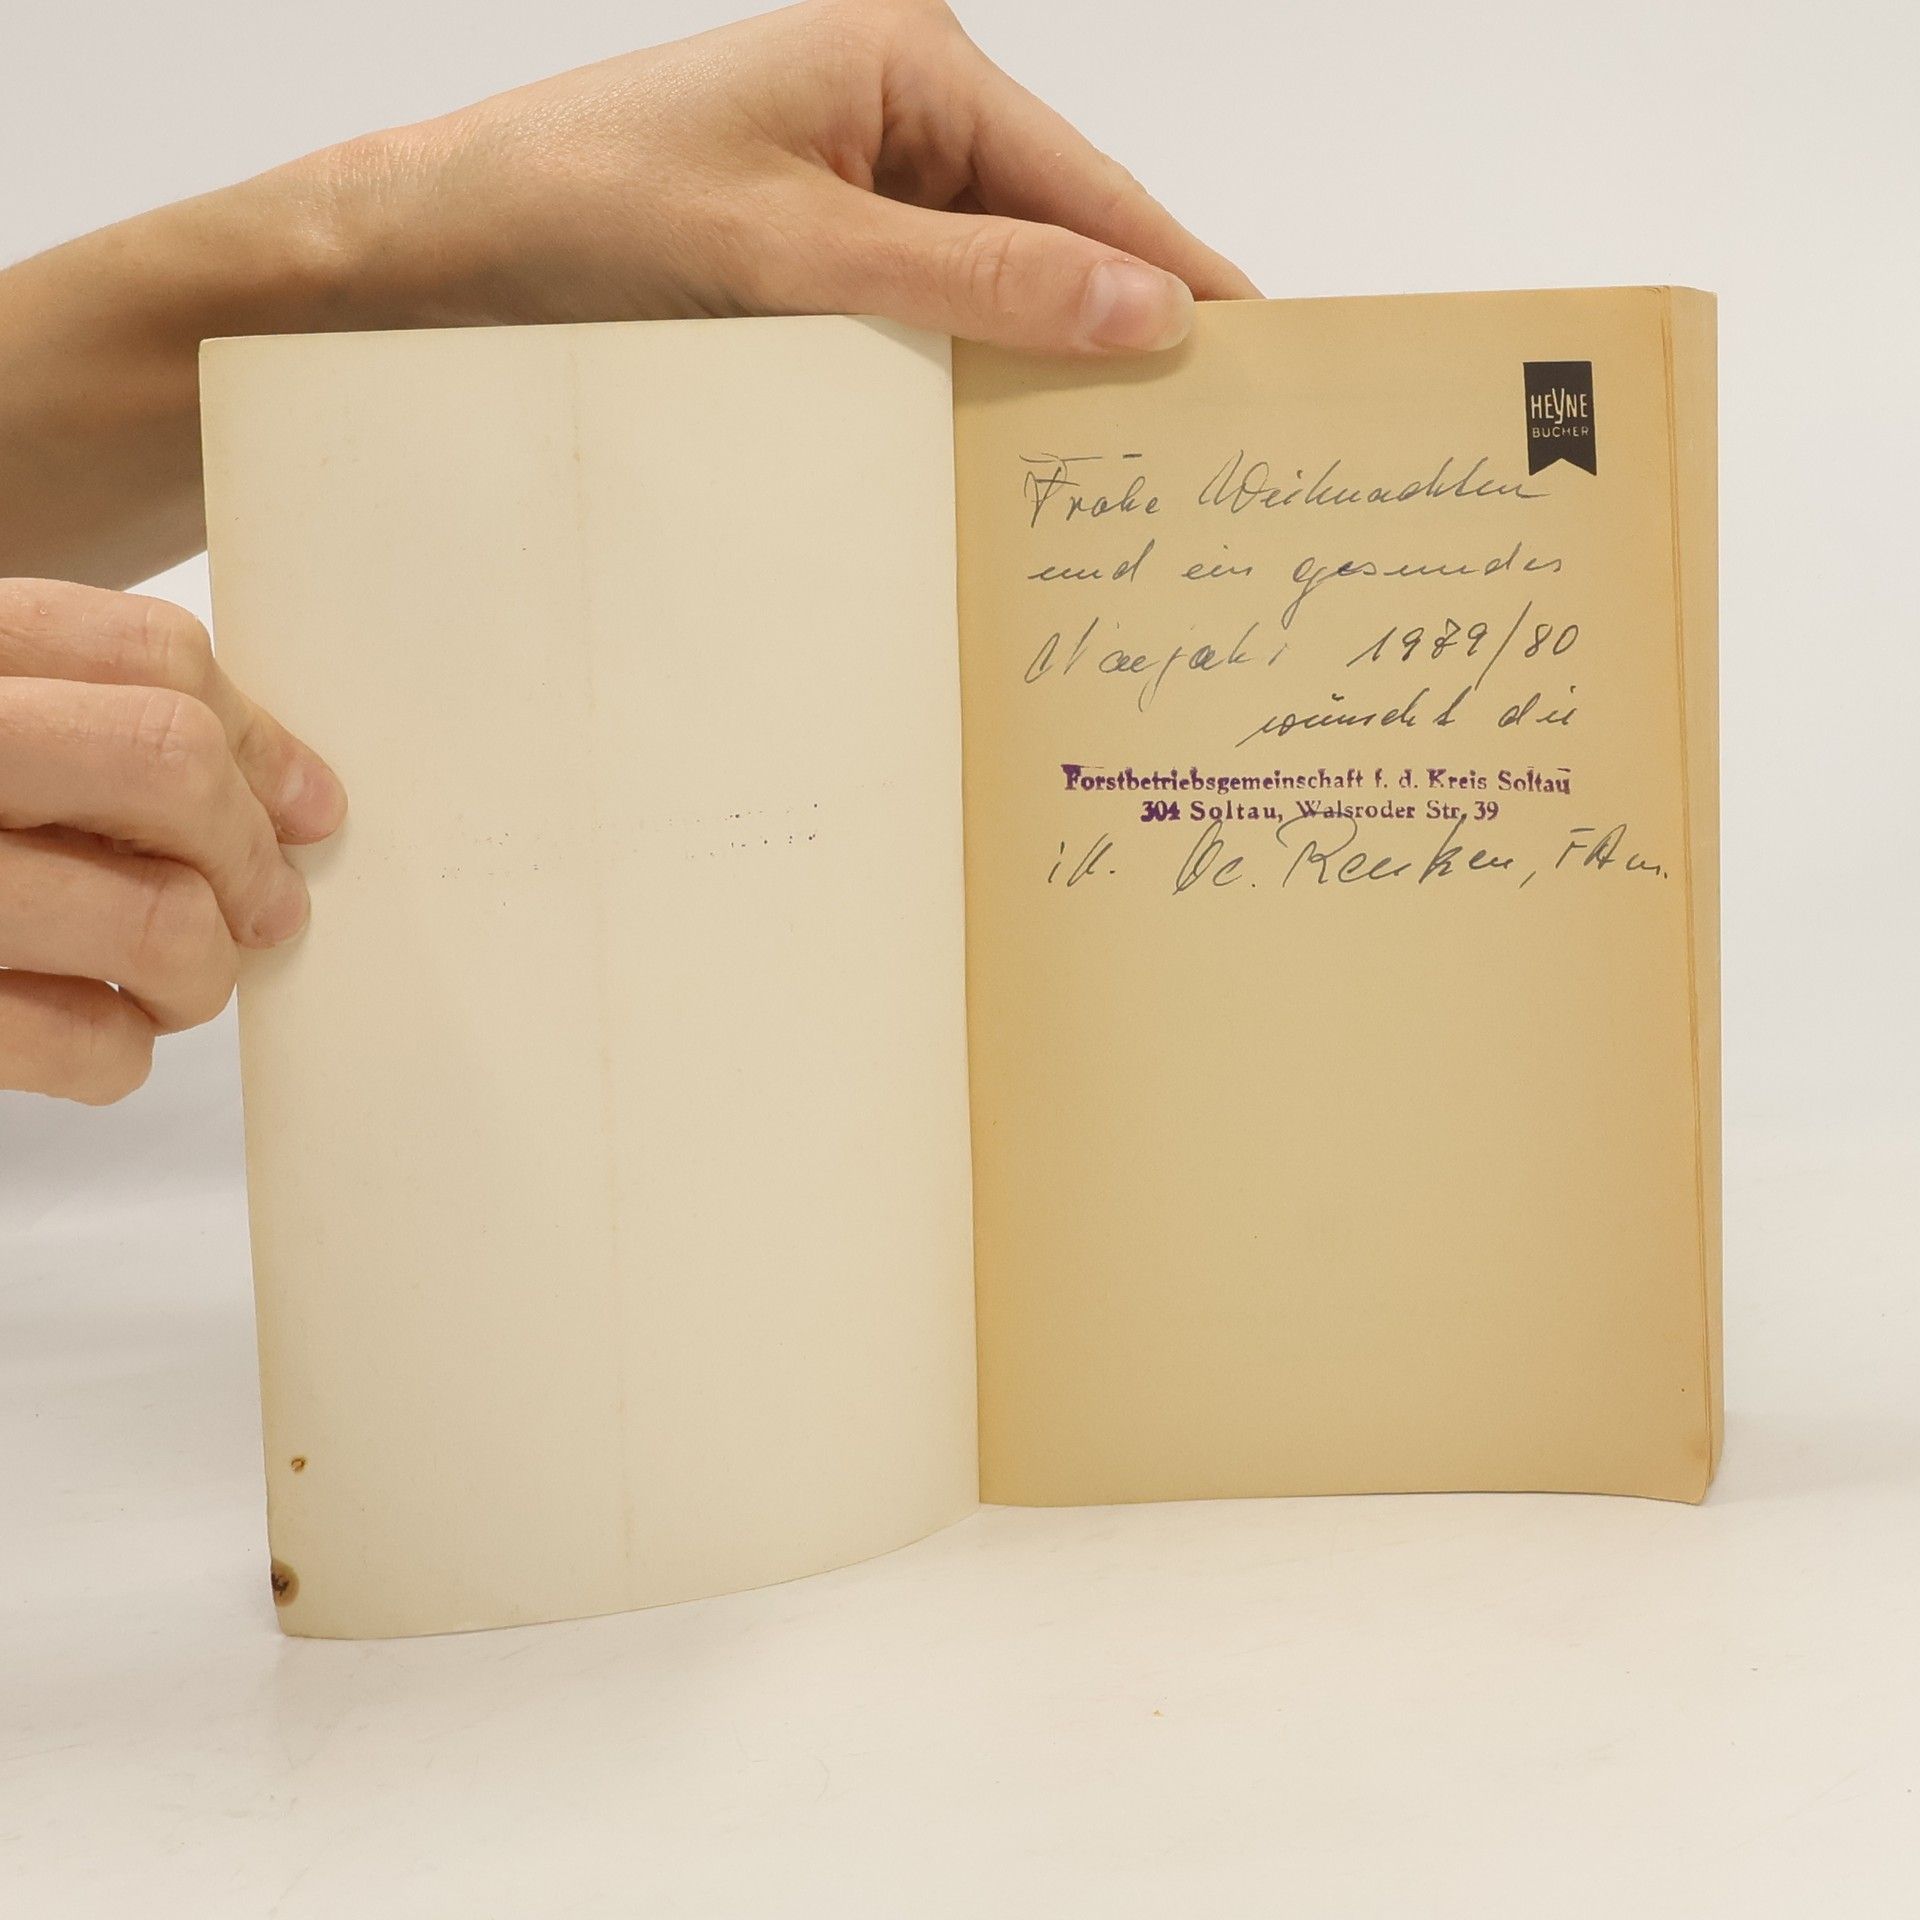 HEYNE
BÜCHER
Frohe Weihnachten
und ein gesundes
Neujahr 1979/80
wünscht die
Forstbetriebsgemeinschaft f. d. Kreis Soltau
304 Soltau, Walsroder Str. 39
Renken,